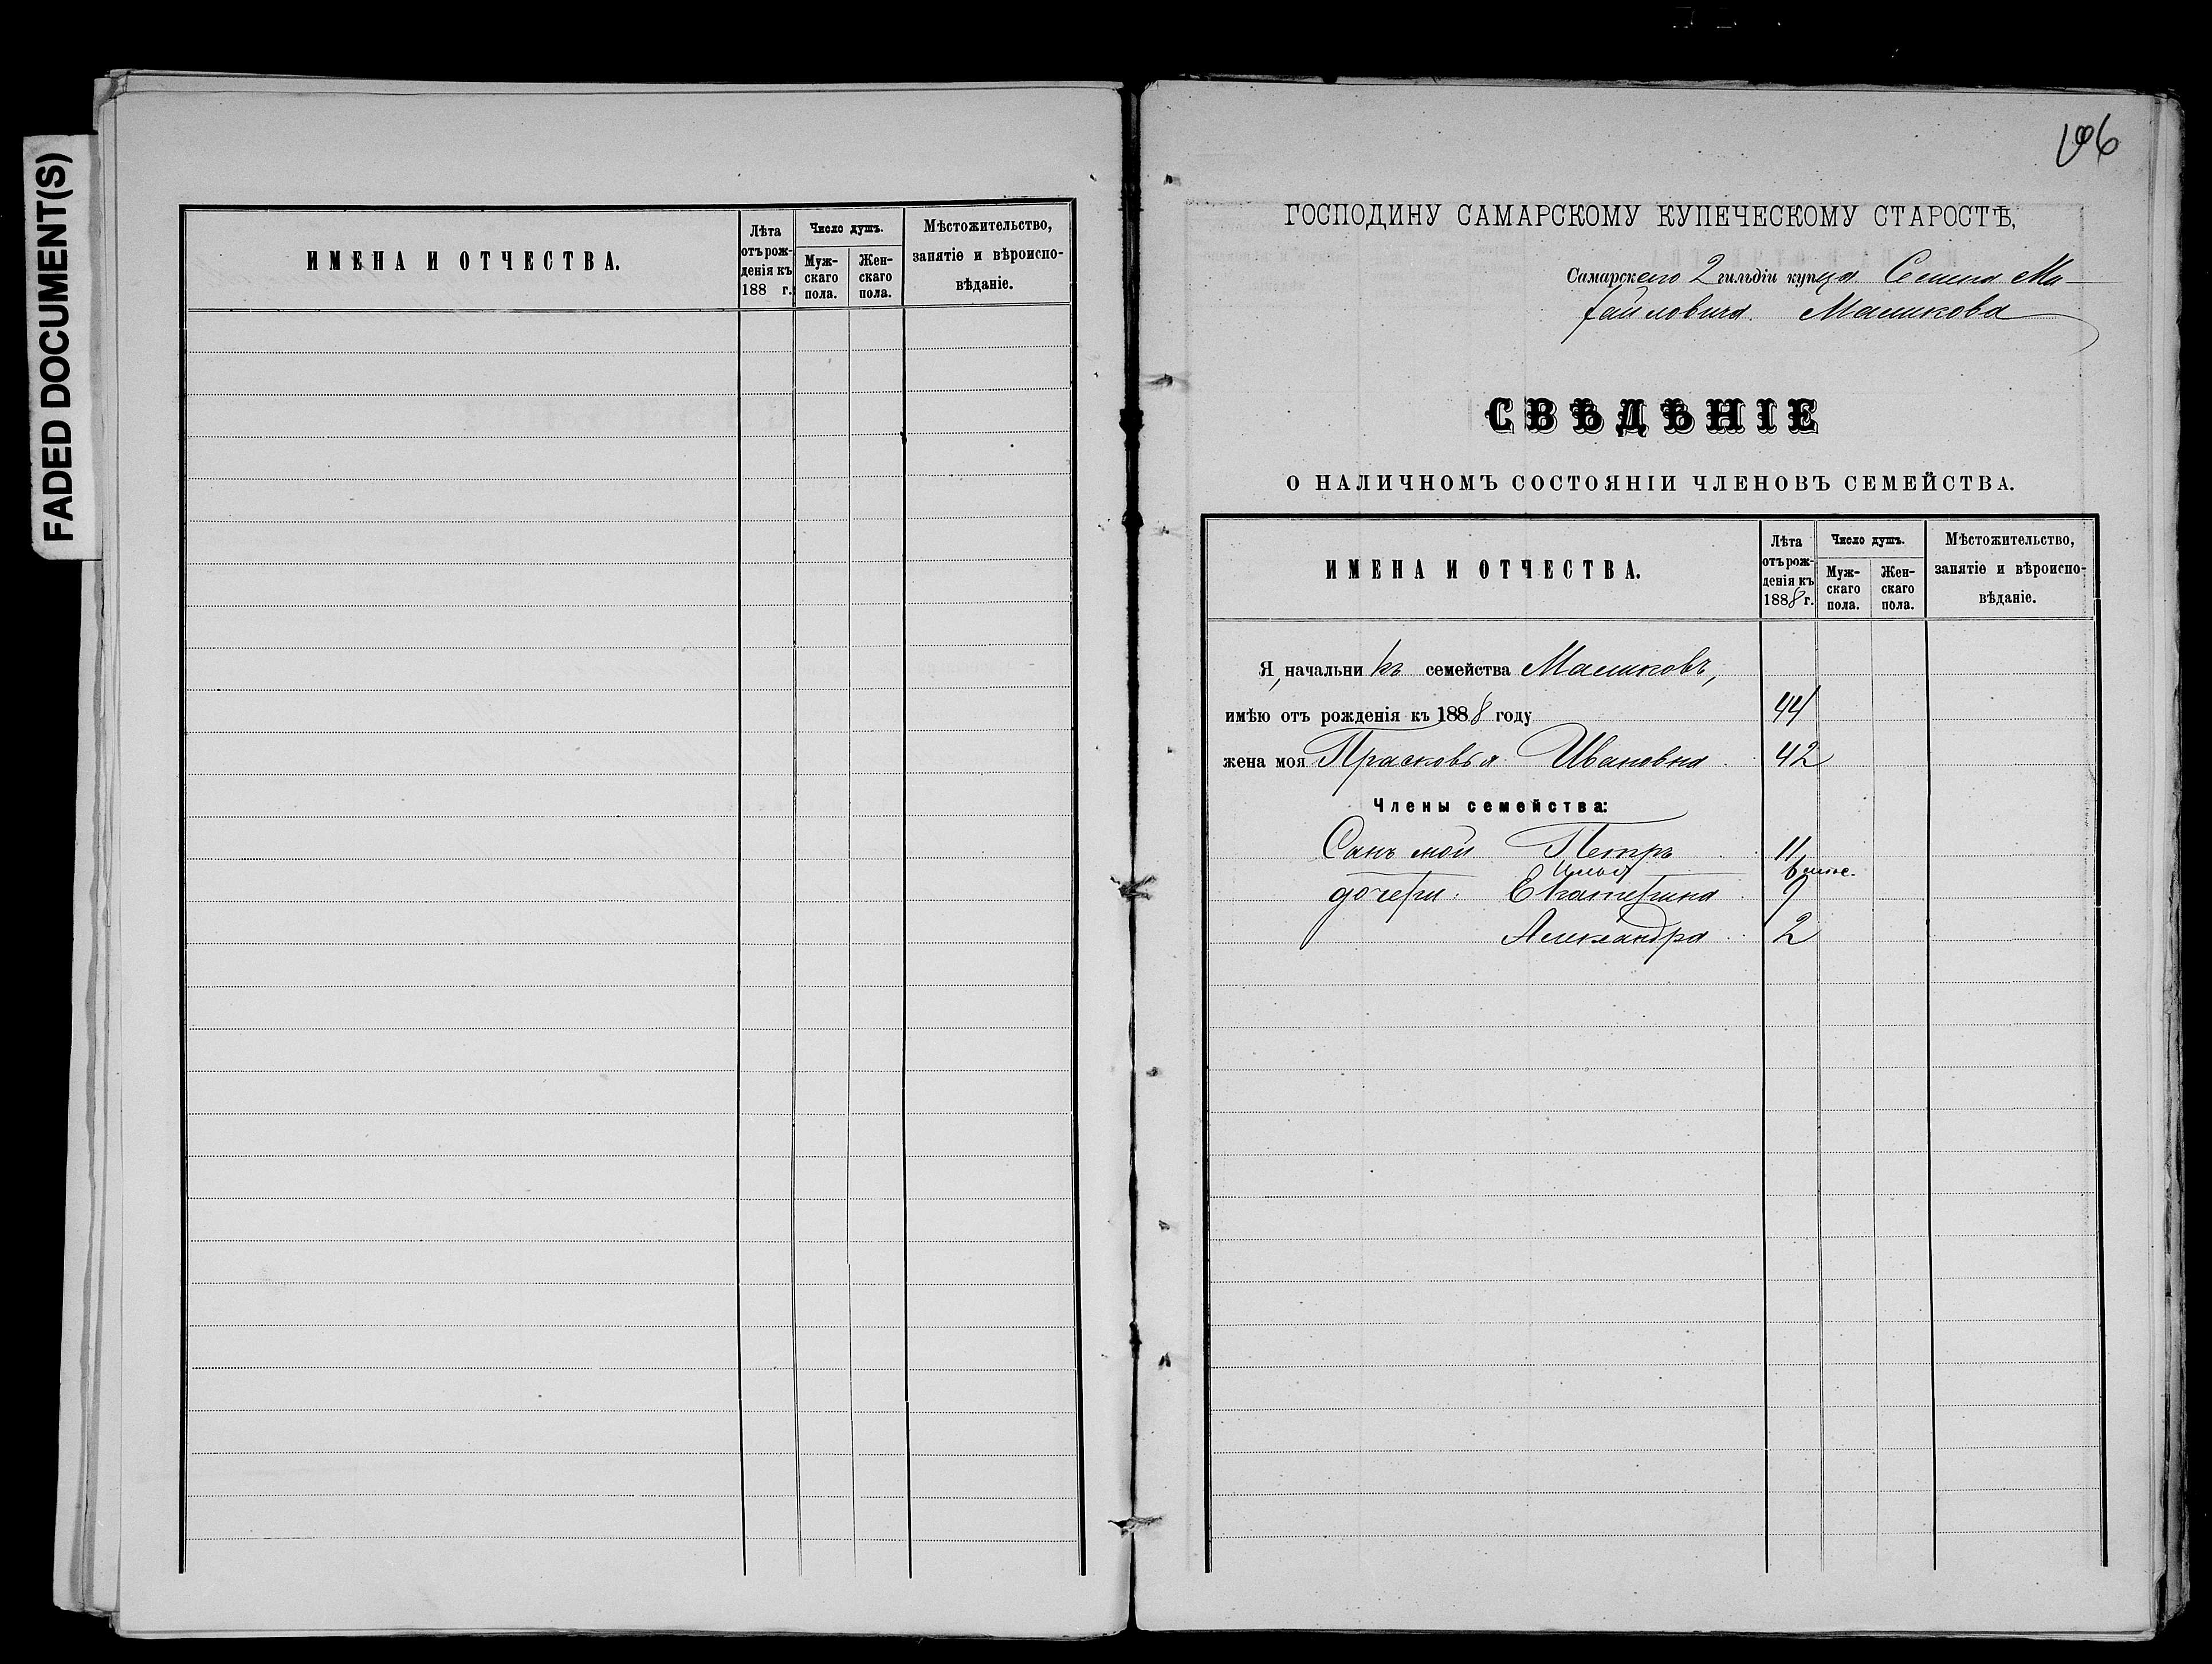 FADED DOCUMENT(S)
ИМЕНА И ОТЧЕСТВА.
Лѣта
отъ рож-
денія къ
188 г.
Число душъ.
Муж-
скаго
пола.
Жен-
скаго
пола.
Мѣстожительство,
занятіе и вѣроиспо-
вѣданіе.
106
ГОСПОДИНУ САМАРСКОМУ КУПЕЧЕСКОМУ СТАРОСТѢ,
Самарскаго 2 гильдіи купца Семена Ми-
хайловича Машкова
СВѢДѢНІЕ
О НАЛИЧНОМЪ СОСТОЯНІИ ЧЛЕНОВЪ СЕМЕЙСТВА.
ИМЕНА И ОТЧЕСТВА.
Лѣта
отъ рож-
денія къ
1888 г.
Число душъ.
Муж-
скаго
пола.
Жен-
скаго
пола.
Мѣстожительство,
занятіе и вѣроиспо-
вѣданіе.
Я, начальникъ семейства
имѣю отъ рожденія къ 1888 году 44
жена моя Прасковья Ивановна 42
Члены семейства:
Сынъ мой Петръ 11
Илья 6
дочери: Екатерина 9
Александра 2